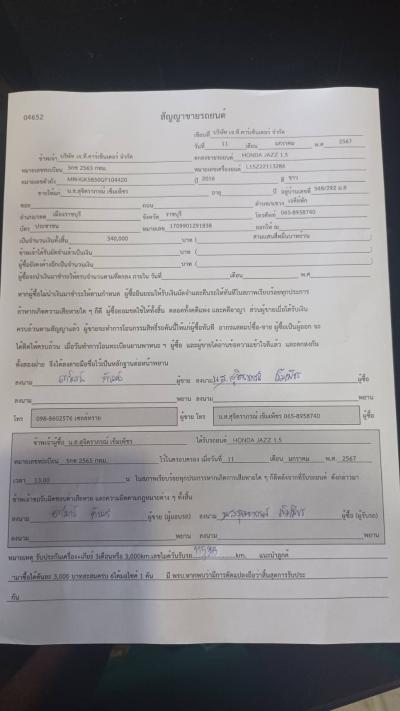 04652
สัญญาขายรถยนต์
เขียนที่ บริษัท เจ.ที.คาร์เซ็นเตอร์ จำกัด
วันที่ 11 เดือน มกราคม พ.ศ 2567
ข้าพเจ้า บริษัท เจ.ที.คาร์เซ็นเตอร์ จำกัด ตกลงขายรถยนต์ HONDA JAZZ 1.5
หมายเลขทะเบียน 5กช 2565 กทม. หมายเลขเครื่องยนต์ L15Z22113286
หมายเลขตัวถัง MRHGK5850GP104420 ปี 2016 สี ขาว
ขายให้แก่ น.ส.สุจิตราภรณ์ เข็มเพ็ชร อายุ ปี อยู่บ้านเลขที่ 348/292 ม.8
ซอย ถนน ตำบล/แขวง เจดีย์หัก
อำเภอ/เขต เมืองราชบุรี จังหวัด ราชบุรี โทรศัพท์ 065-8958740
บัตร ประชาชน หมายเลข 1709901291838 ออกให้ ณ
เป็นจำนวนเงินทั้งสิ้น 340,000 บาท ( สามแสนสี่หมื่นบาทถ้วน )
ข้าพเจ้าได้รับมัดจำแล้วเป็นเงิน บาท ( )
ผู้ซื้อยังคงค้างอีกเป็นจำนวนเงิน บาท ( )
ผู้ซื้อจะนำเงินมาชำระให้ครบจำนวนตามที่ตกลง ภายใน วันที่ เดือน พ.ศ
หากผู้ซื้อไม่นำเงินมาชำระให้ตามกำหนด ผู้ซื้อยินยอมให้ริบเงินมัดจำและคืนรถให้ทันทีในสภาพเรียบร้อยทุกประการ
ถ้าหากเกิดความเสียหายใด ๆ ก็ดี ผู้ซื้อยอมชดใช้ให้ทั้งสิ้น ตลอดทั้งคดีแพ่ง และคดีอาญา ส่วนผู้ขายเมื่อได้รับเงิน
ครบถ้วนตามสัญญาแล้ว ผู้ขายจะทำการโอนกรรมสิทธิ์รถคันนี้ให้แก่ผู้ซื้อทันที อากรแสตมป์ซื้อ-ขาย ผู้ซื้อเป็นผู้ออก จะ
ได้ติดให้ครบถ้วน เมื่อวันทำการโอนทะเบียนยานพาหนะ ฯ ผู้ซื้อ และผู้ขายได้อ่านข้อความเข้าใจดีแล้ว และตกลงกัน
ทั้งสองฝ่าย จึงได้ลงลายมือชื่อไว้เป็นหลักฐานต่อหน้าพยาน
ลงนาม ผู้ขาย ลงนาม ผู้ซื้อ
ลงนาม พยาน ลงนาม พยาน
โทร 098-8602576 เซลล์ทราย ผู้ขาย โทร น.ส.สุจิตราภรณ์ เข็มเพ็ชร 065-8958740 ผู้ซื้อ
ข้าพเจ้าผู้ซื้อ น.ส.สุจิตราภรณ์ เข็มเพ็ชร ได้รับรถยนต์ HONDA JAZZ 1.5
หมายเลขทะเบียน 5กช 2565 กทม. ไว้ในครอบครอง เมื่อวันที่ 11 เดือน มกราคม พ.ศ. 2567
เวลา 13.00 น ในสภาพเรียบร้อยทุกประการหากเกิดการเสียหายใด ๆ ก็ดีหลังจากที่รับรถยนต์ ดังกล่าวมา
ข้าพเจ้าขอรับผิดชอบค่าเสียหาย และความผิดตามกฎหมายต่าง ๆ ทั้งสิ้น
ลงนาม ผู้ขาย (ผู้มอบรถ) ลงนาม ผู้ซื้อ (ผู้รับรถ)
ลงนาม พยาน ลงนาม พยาน
หมายเหตุ รับประกันเครื่อง+เกียร์ 3เดือนหรือ 3,000km.เลขไมล์วันรับรถ km. แนะนำลูกค้า
มาซื้อได้คันละ 3,000 บาทสะสมครบ 6ได้มอไซค์ 1 คัน มี พรบ.หากพบว่ามีการดัดแปลงถือว่าสิ้นสุดการรับประ
กัน